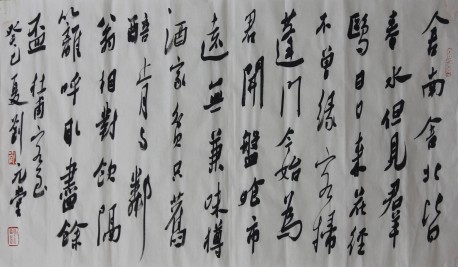 舍南舍北皆
春水但見羣
鷗日日來花徑
不曾緣客掃
蓬門今始為
君開盤飧市
遠無兼味樽
酒家貧只舊
醅肯与鄰
翁相對飲隔
籬呼取盡餘
盃杜甫客至
癸巳夏劉元堂